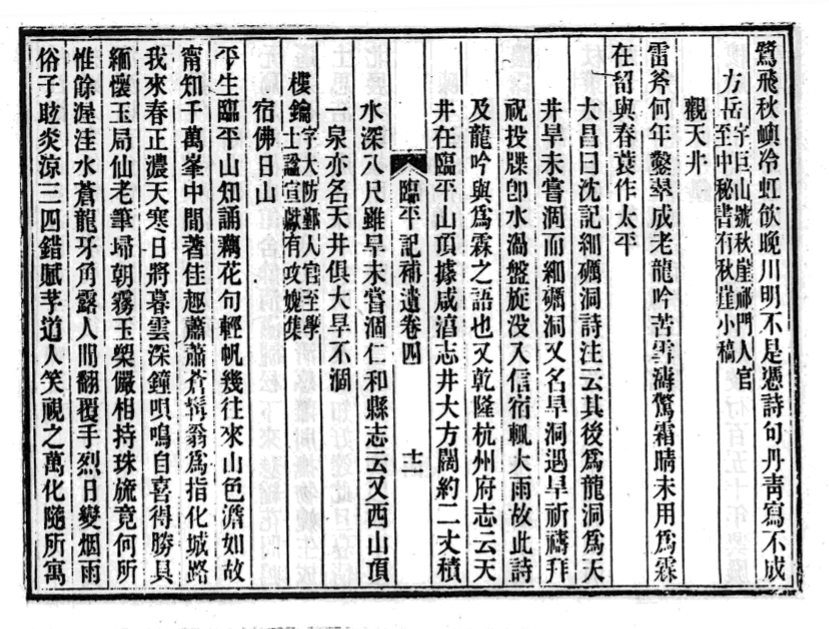 鷺飛秋嶼冷虹飲晚川明不是憑詩句丹青寫不成
方岳字巨山號秋崖祁門人官至中秘書有秋崖小稿
觀天井
雷斧何年鑿翠成老龍吟苦雪濤驚霜晴未用爲霖
在留與春蓑作太平
大昌曰沈記細礪洞詩注云其後爲龍洞爲天
井旱未嘗涸而細礪洞又名旱洞遇旱祈禱拜
祝投牒卽水渦盤旋没入信宿輒大雨故此詩
及龍吟與爲霖之語也又乾隆杭州府志云天
井在臨平山頂據咸淳志井大方闊約二丈積
臨平記補遺卷四
十二
水深八尺雖旱未嘗涸仁和縣志云又西山頂
一泉亦名天井俱大旱不涸
樓鑰字大防鄞人官至學士謚宣獻有攻媿集
宿佛日山
平生臨平山知誦藕花句輕帆幾往來山色澹如故
甯知千萬峯中間著佳趣蕭蕭蒼髯翁爲指化城路
我來春正濃天寒日將暮雲深鐘唄鳴自喜得勝具
緬懷玉局仙老筆埽朝霧玉槃儼相持珠旒竟何所
惟餘渥洼水蒼龍牙角露人間翻覆手烈日變烟雨
俗子眩炎涼三四錯賦芧道人笑視之萬化隨所寓